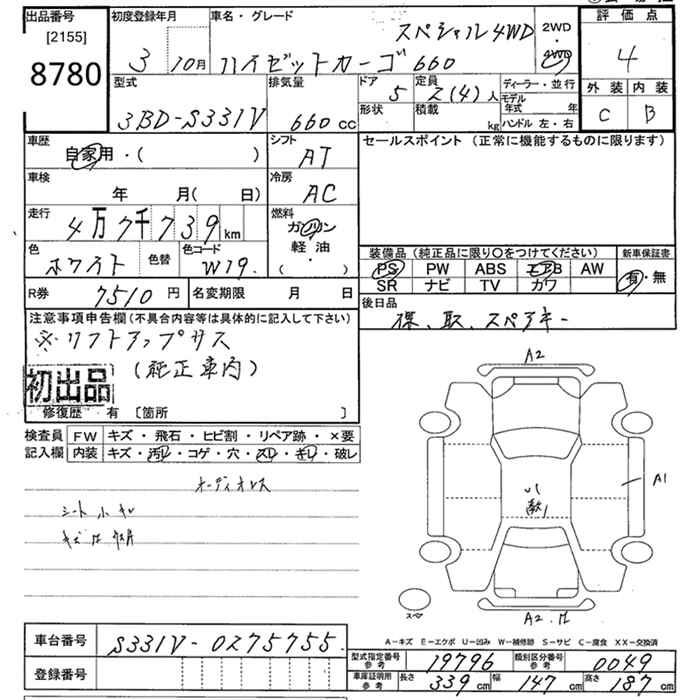 出品番号
[2155]
8780
初度登録年月
3 10月
車名・グレード
スペシャル4WD
ハイゼットカーゴ 660
2WD
・
4WD
評価点
4
外装 内装
C B
型式
3BD-S331V
排気量
660 cc
ドア 5
形状
定員 2(4)人
積載 kg
ディーラー・並行
モデル年式 年
ハンドル 左・右
車歴
自家用・( )
シフト
AT
車検
年 月( 日)
冷房
AC
走行
4万7千739km
燃料
ガソリン
軽・油
・( )
色
ホワイト
色替
色コード
W19.
セールスポイント (正常に機能するものに限ります)
装備品 (純正品に限り○をつけてください)
PS PW ABS エアB AW
SR ナビ TV カワ
新車保証書
有・無
R券 7510円
名変期限 月 日
後日品
保、取、スペアキー
注意事項申告欄(不具合内容等は具体的に記入して下さい)
※リフトアップサス
(純正車内)
初出品
修復歴 有 [箇所 ]
検査員記入欄
FW キズ・飛石・ヒビ割・リペア跡・×要
内装 キズ・汚レ・コゲ・穴・スレ・キレ・破レ
オーディオレス
シート小キレ
A2
A1
A2
スペア
A-キズ E-エクボ U-凹み W-補修跡 S-サビ C-腐食 XX-交換済
車台番号 S331V-0275755
登録番号
型式指定番号 参考 19796
類別区分番号 参考 0049
車庫証明用 参考 長さ 339cm 幅 147cm 高さ 187cm